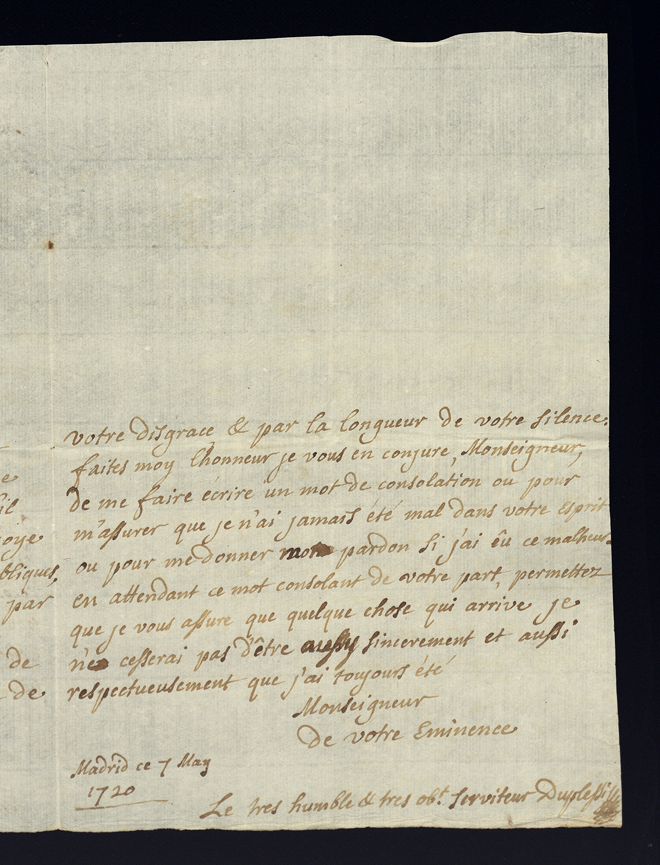 e
il
oye
bliques,
par
de
de
votre disgrace & par la longueur de votre silence.
faites moy lhonneur je vous en conjure, Monseigneur,
de me faire écrire un mot de consolation ou pour
m'assurer que je n'ai jamais été mal dans votre esprit
ou pour me donner mon pardon si j'ai êu ce malheur
en attendant ce mot consolant de votre part, permettez
que je vous assure que quelque chose qui arrive je
ne cesserai pas d'être aussy sincerement et aussi
respectueusement que j'ai toujours été
Monseigneur
De votre Eminence
Madrid ce 7 May
1720
Le tres humble & tres obt. serviteur Duplessis